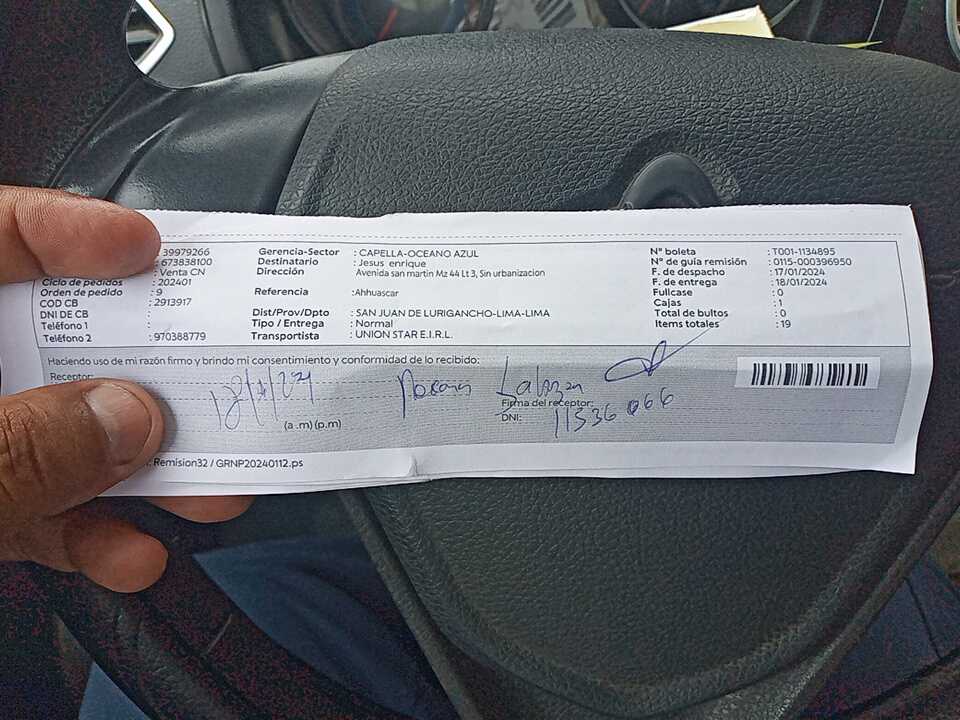 39979266
: 673838100
: Venta CN
Ciclo de pedidos : 202401
Orden de pedido : 9
COD CB : 2913917
DNI DE CB :
Teléfono 1 :
Teléfono 2 : 970388779
Gerencia-Sector : CAPELLA-OCEANO AZUL
Destinatario : Jesus enrique
Dirección Avenida san martin Mz 44 Lt 3, Sin urbanizacion
Referencia :Ahhuascar
Dist/Prov/Dpto : SAN JUAN DE LURIGANCHO-LIMA-LIMA
Tipo / Entrega : Normal
Transportista : UNION STAR E.I.R.L.
N° boleta : T001-1134895
N° de guía remisión : 0115-000396950
F. de despacho : 17/01/2024
F. de entrega : 18/01/2024
Fullcase : 0
Cajas : 1
Total de bultos : 0
Items totales : 19
Haciendo uso de mi razón firmo y brindo mi consentimiento y conformidad de lo recibido:
Receptor:
(a .m) (p.m)
Firma del receptor:
DNI: 11536066
Remision32 / GRNP20240112.ps